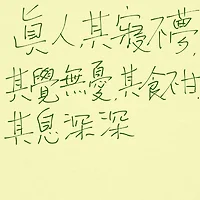 眞人其寢不夢,
其覺無憂,其食不甘,
其息深深